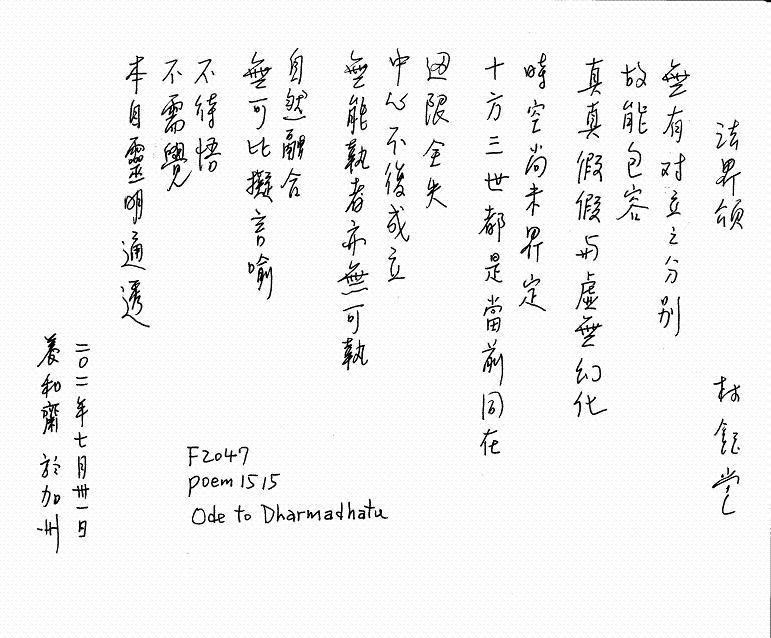 法界頌
林鈺堂
無有对立之分别
故能包容
真真假假与虛無幻化
時空尚未界定
十方三世都是當前同在
迴限全失
中心不復成立
無能執者亦無可執
自然融合
無可比擬言喻
不待悟
不需覺
本自靈明通透
二〇二一年七月卅一日
養和齋 於加州
F2047
poem 1515
Ode to Dharmadhatu